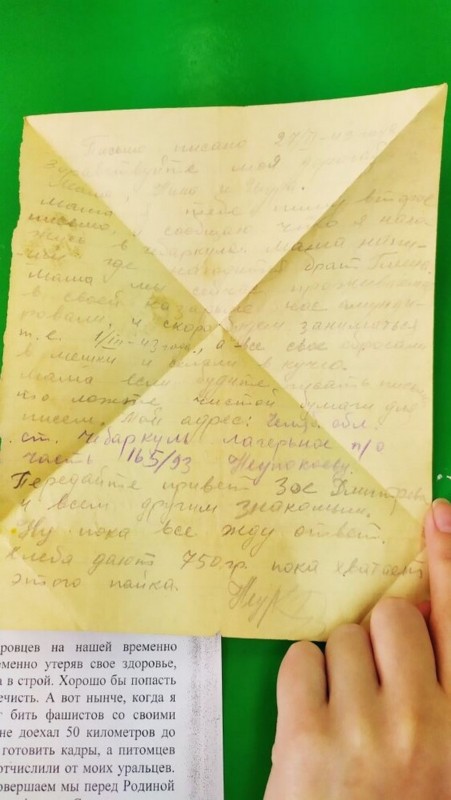 Письмо писано 27/II-43 года
Здравствуйте моя дорогая
Мама, Нина и Шура.
Мама я тебе пишу второе
письмо. Я сообщаю что я пока
живу в Чебаркуле. Мама напи-
ши где находится брат Гриша.
Мама мы сейчас проживаем
в своей казарме, нас
и скоро будем заниматься
т.е. 1/III-43 года, а все свое
в мешки и склали в кучу.
Мама если будете писать письмо
то ложте чистой бумаги для
писем. Мой адрес: Челяб. обл.
ст. Чебаркуль лагерное п/о
часть 165/93 Неупокоеву.
Передайте привет Зое
и всем другим знакомым.
Ну пока все жду ответ.
Хлеба дают 750 гр. пока хватает
этого пайка.
ровцев на нашей временно
еменно утеряв свое здоровье,
а в строй. Хорошо бы попасть
ечисть. А вот нынче, когда я
г бить фашистов со своими
не доехал 50 километров до
готовить кадры, а питомцев
отчислили от моих уральцев.
овершаем мы перед Родиной